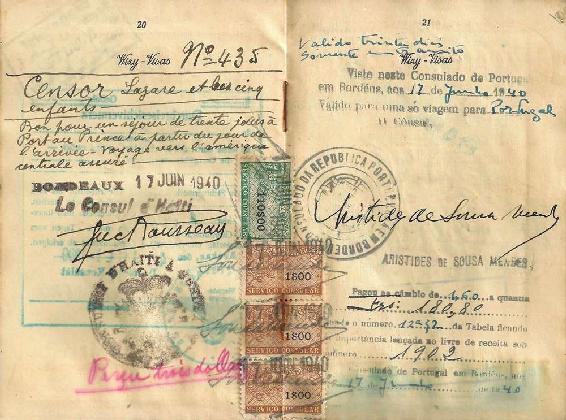 20
Wizy - Vivas Nº 435
Censor Lazare et ses cinq
enfants
Bon pour un séjour de trente jours à
Port au Prince à partir du jour de
l'arrivée - voyage vers l'amérique
centrale assuré
BORDEAUX 17 JUIN 1940
Le Consul d'Haïti
Luc Rousseau
Reçu trois dollars
21
Valido trinta dias
Somente em transito
Wizy - Vivas
Visto neste Consulado de Portugal
em Bordéus, aos 17 de Junho 1940
Válido para uma só viagem para Portugal
O Cônsul,
CONSULADO DA REPUBLICA PORTUGUESA EM BORDEUS
Aristides de Sousa Mendes
ARISTIDES DE SOUSA MENDES
Pagou ao câmbio de 1,60 a quantia
de
sob o numero da Tabela ficando
a importância lançada no livro de receita sob
o número 1902
Consulado de Portugal em Bordéus,
17 de Junho 40
1$00
SERVIÇO CONSULAR
1$00
SERVIÇO CONSULAR
1$00
SERVIÇO CONSULAR
17 JUN 1940